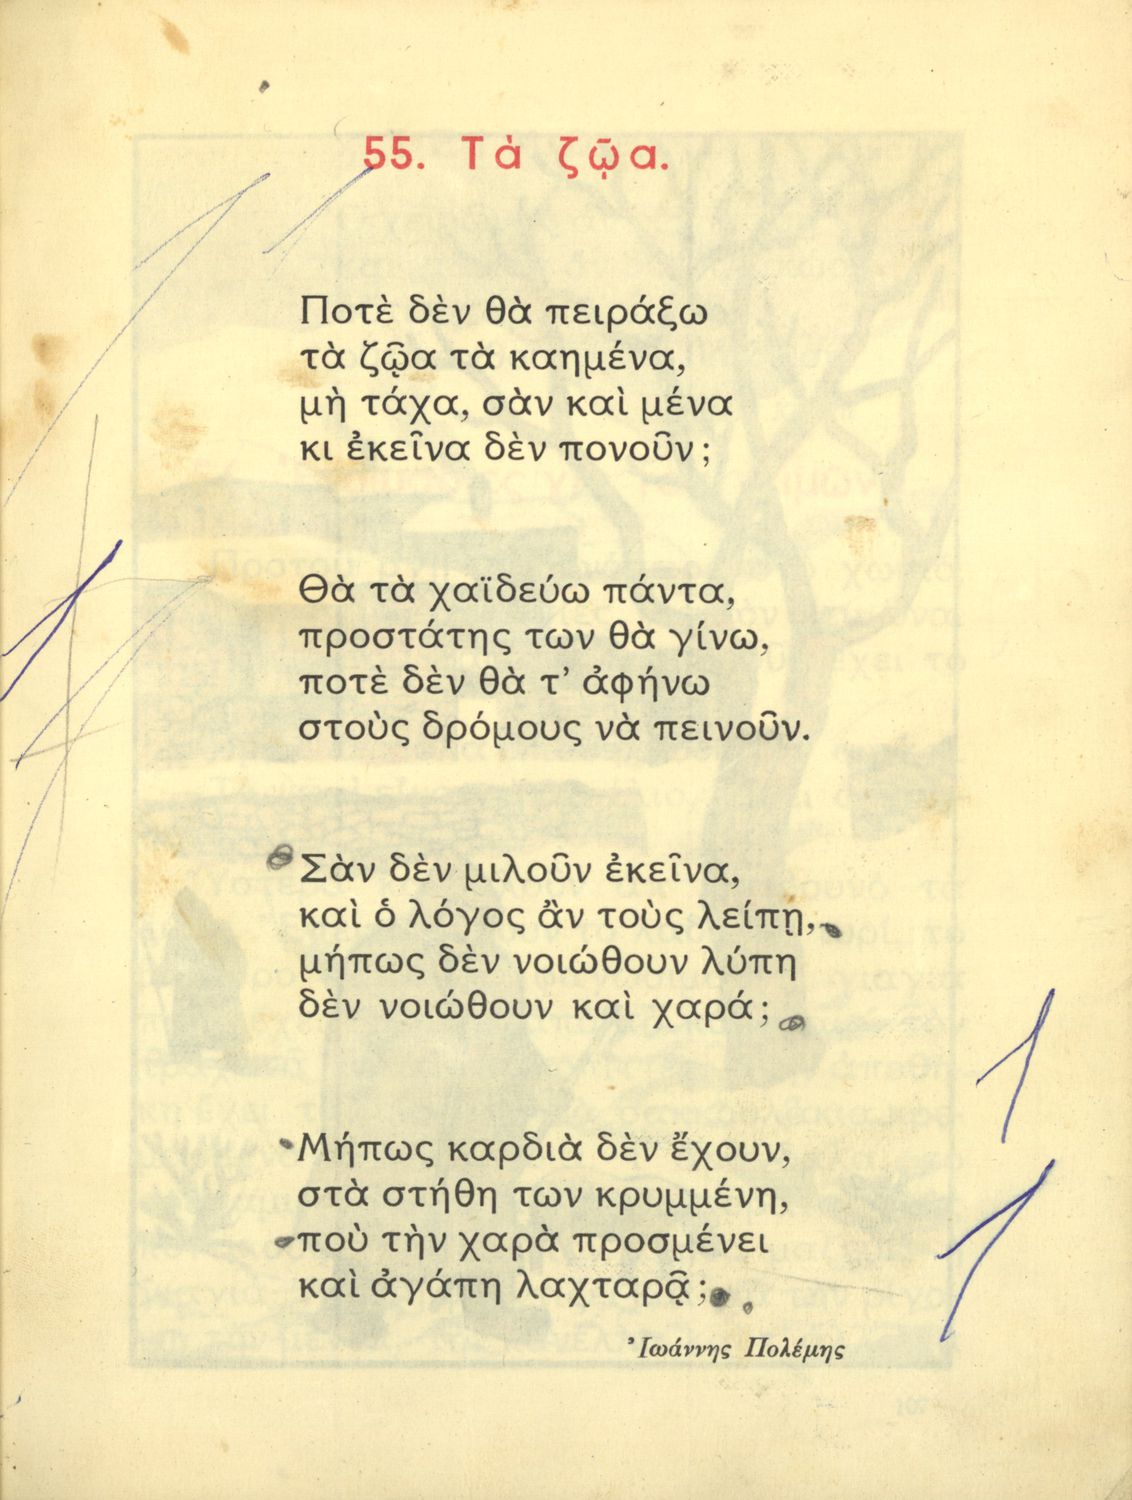 55. Τὰ ζῷα.
Ποτὲ δὲν θὰ πειράξω
τὰ ζῷα τὰ καημένα,
μὴ τάχα, σὰν καὶ μένα
κι ἐκεῖνα δὲν πονοῦν;
Θὰ τὰ χαϊδεύω πάντα,
προστάτης των θὰ γίνω,
ποτὲ δὲν θὰ τ’ ἀφήνω
στοὺς δρόμους νὰ πεινοῦν.
Σὰν δὲν μιλοῦν ἐκεῖνα,
καὶ ὁ λόγος ἂν τοὺς λείπῃ,
μήπως δὲν νοιώθουν λύπη
δὲν νοιώθουν καὶ χαρά;
Μήπως καρδιὰ δὲν ἔχουν,
στὰ στήθη των κρυμμένη,
ποὺ τὴν χαρὰ προσμένει
καὶ ἀγάπη λαχταρᾷ;
Ἰωάννης Πολέμης